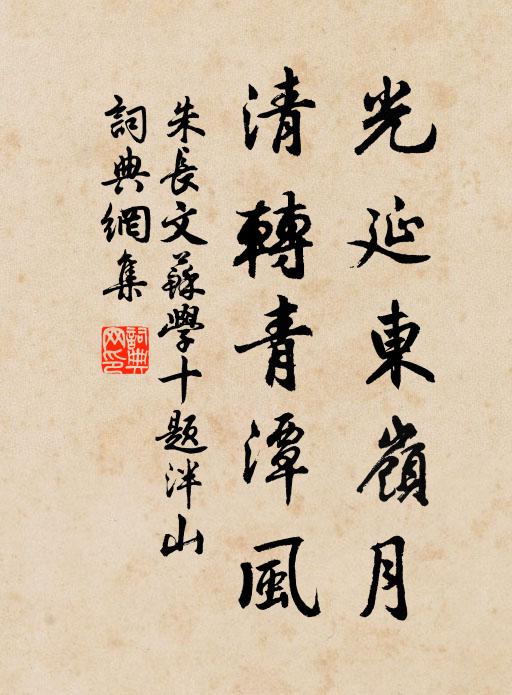 光延東嶺月
清轉青潭風
朱長文蘇學十題泮山
詞典網集
詞典网印